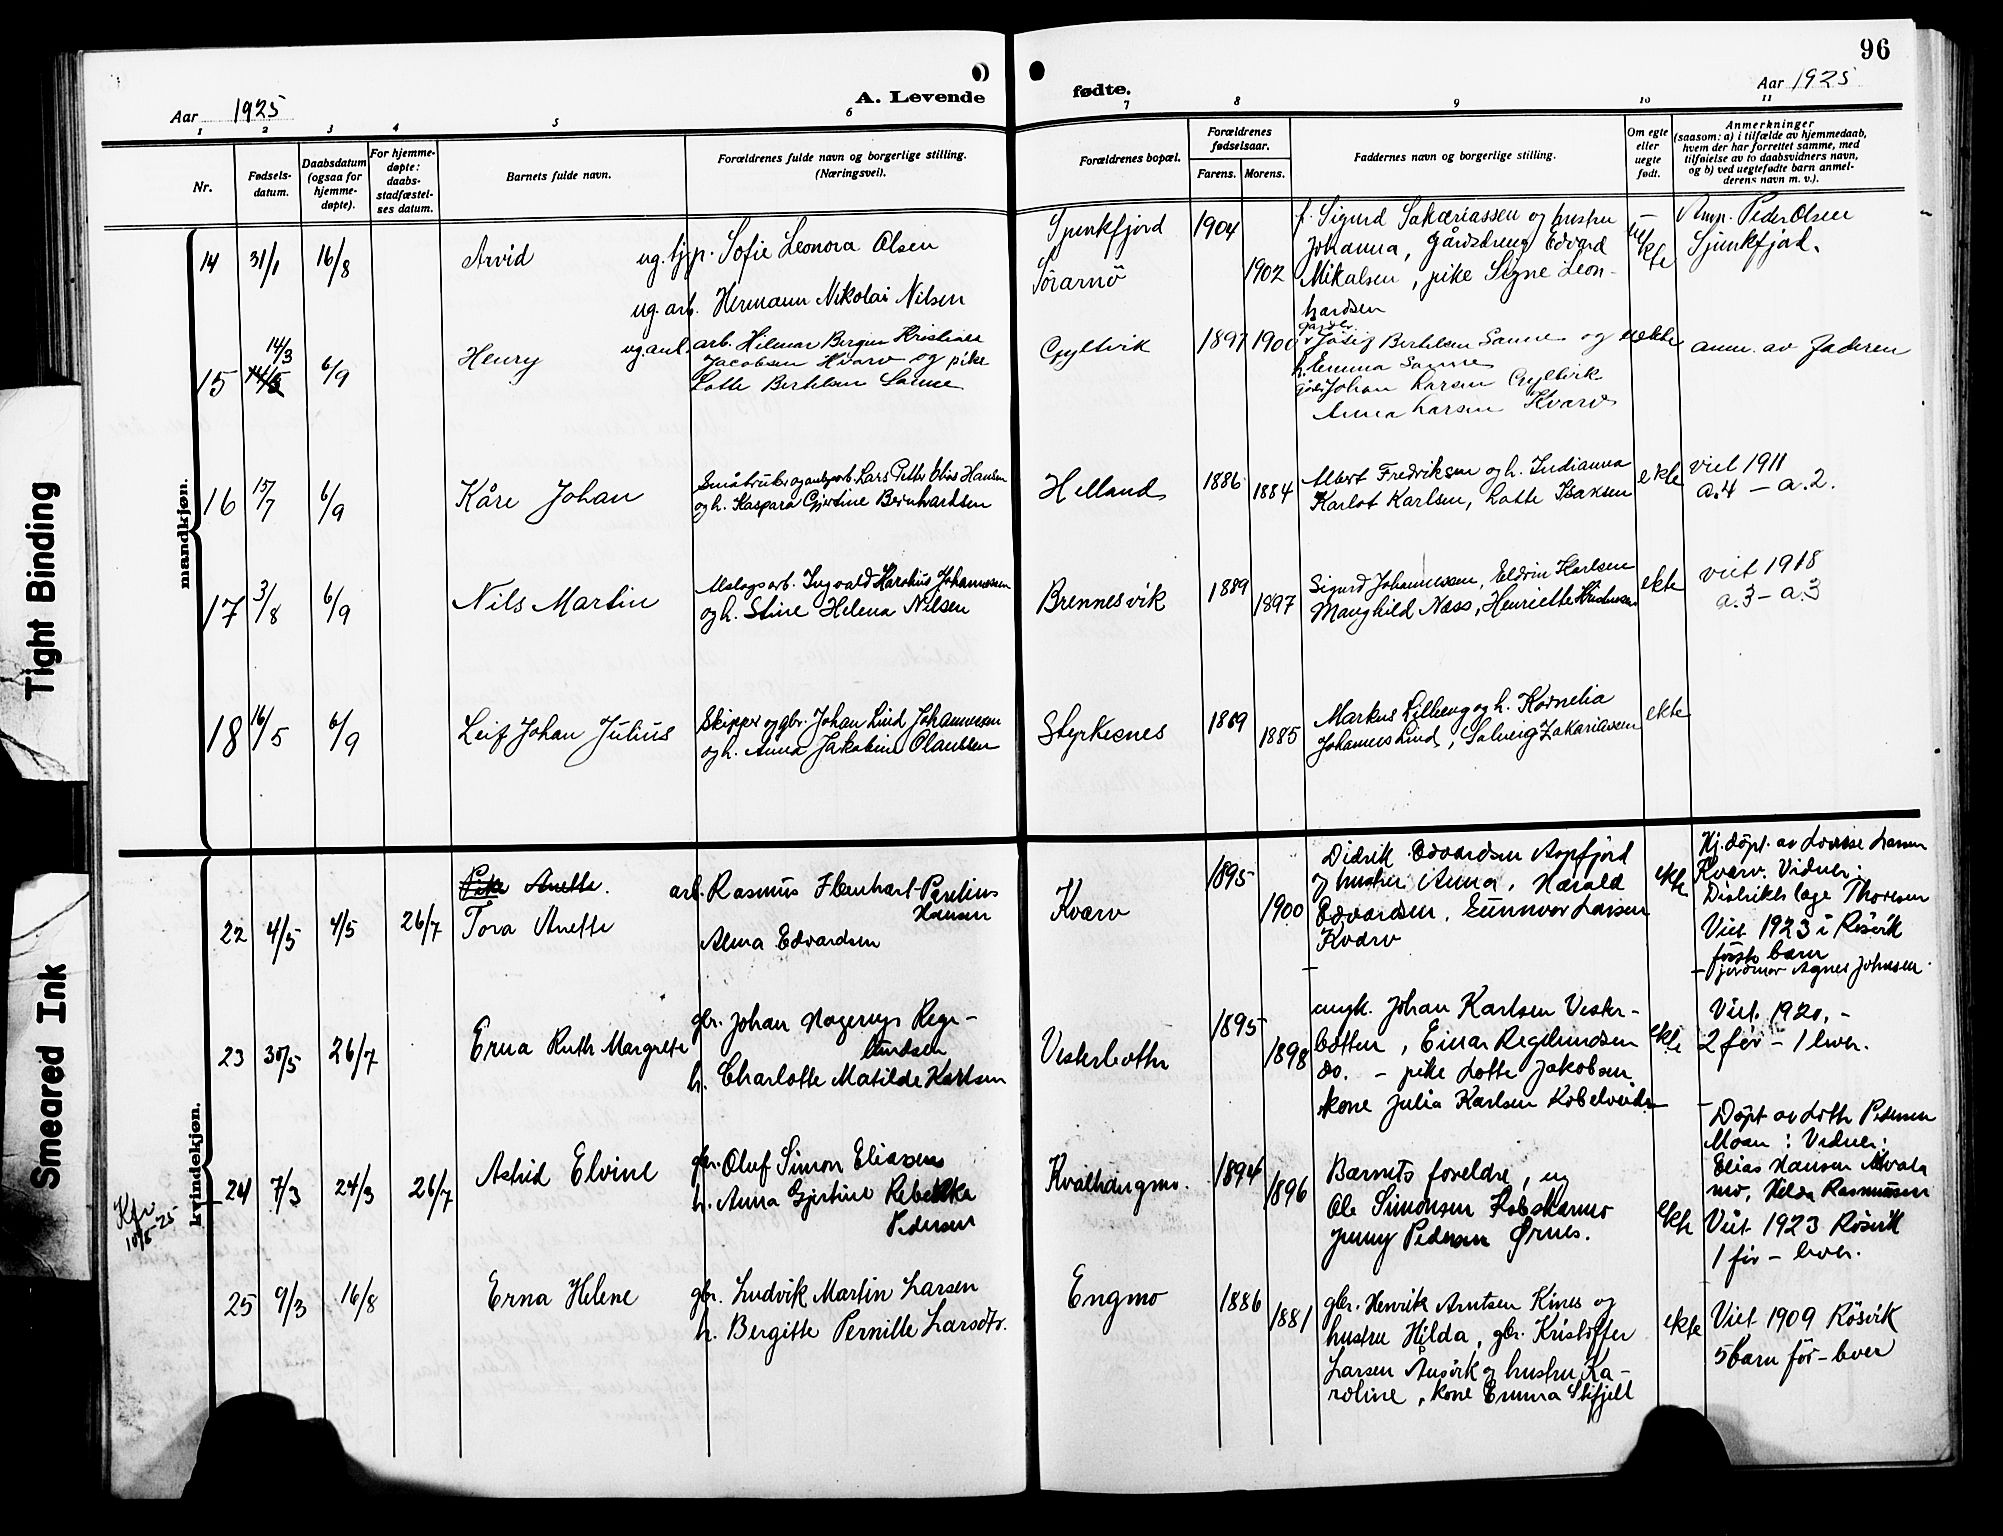 96
Aar 1925
A. Levende
fødte.
Aar 1925
1 2 3 4 5 6 7 8 9 10 11
Nr.
Fødsels-
datum.
Daabsdatum
(ogsaa for
hjemme-
døpte).
For hjemme-
døpte:
daabs-
stadfæstel-
ses datum.
Barnets fulde navn.
Forældrenes fulde navn og borgerlige stilling.
(Næringsvei).
Forældrenes bopæl.
Forældrenes
fødselsaar.
Farens. Morens.
Faddernes navn og borgerlige stilling.
Om egte
eller
uegte
født.
Anmerkninger
(saasom: a) i tilfælde av hjemmedaab,
hvem der har forrettet samme, med
tilføielse av to daabsvidners navn,
og b) ved uegtefødte barn anmel-
derens navn m. v.).
mandkjøn.
14 31/1 16/8 Arvid
ug. tjp. Sofie Leonora Olsen
ug. arb. Hermann Nikolai Nilsen
Sjunkfjord
Sørarnø
1904
1902
f. Sigurd Sakariassen og hustru
Johanna, gårdsdreng Edvard
Mikalsen, pike Signe Leon-
hardsen
uekte
Anm. Peder Olsen
Sjunkfjord.
15 14/3 6/9 Henry
ug. anl. arb. Hilmar Berger Kristian
Jacobsen Kvarv og pike
Lotte Bertelsen Sanne
Gyltvik
1897 1900
Josef Bertelsen Sanne og
h. Emma Sanne
Johan Larsen Gyltvik
Anna Larsen Kvarv
uekte
anm. av faderen
16 15/7 6/9 Kåre Johan
Småbruker og anlegsarb. Lars Petter Elias Hansen
og h. Kaspara Gjertine Bernhardsen
Helland
1886 1884
Albert Fredriksen og h. Indianna
Karlot Karlsen, Lotte Isaksen
ekte
viet 1911
a.4 – a.2.
17 3/8 6/9 Nils Martin
Anlegsarb. Ingvald Karolius Johannessen
og h. Stine Helena Nilsen
Brennesvik
1889 1897
Sigurd Johannessen, Eldrin Karlsen
Manghild Næss, Henriette Kristensen
ekte
viet 1918
a.3 – a.3
18 16/5 6/9 Leif Johan Julius
Skipper og gbr. Johan Lind Johannessen
og h. Anna Jakobine Olaussen
Styrkesnes
1889 1885
Markus Lillleeng og h. Kornelia
Johannes Lind, Solveig Zakariassen
ekte
kvindekjøn.
Anette.
22 4/5 4/5 26/7 Tora Anette
arb. Rasmus Bernhart Paulius
Hansen
Alma Edvardsen
Kvarv
1895
1900
Didrik Edvardsen Aspfjord
og hustru Anna, Harald
Edvardsen, Gunnvor Larsen
Kvarv
ekte
Hj. døpt av Lovise Larsen
Kvarv. Vidner:
Distriktslæge Thoresen
Viet 1923 i Røsvik
første barn
– jordmor Agnes Johnsen.
23 30/5 26/7 Erna Ruth Margrete
gbr. Johan Hagerup Regi-
lundsen
h. Charlotte Matilde Karlsen
Vesterbotten
1895
1898
ungk. Johan Karlsen Vester-
botten, Einar Regilundsen
do. – pike Lotte Jakobsen
kone Julia Karlsen Kobelvedr
ekte
Viet 1920. –
2 før – 1 lever.
Kfr
10/8-25
24 7/3 24/3 26/7 Astrid Elvine
fbr. Oluf Simon Eliasen
h. Anna Gjertine Rebekka
Pedersen
Kvalhaugmo.
1894
1896
Barnets foreldre, ug
Ole Simonsen Kobskarmo
Jenny Pedersen Ørnes.
ekte
Døpt av Lotte Pedersen
Moan: Vidner:
Elias Hansen Kvala
mo, Hilda Rasmussen
Viet 1923 Røsvik
1 før – lever.
25 9/3 16/8 Erna Helene
gbr. Ludvik Martin Larsen
h. Bergitte Pernille Larsdtr.
Engmo
1886
1881
gbr. Henrik Arntsen Kines og
hustru Hilda, gbr. Kristoffer
Larsen Ånsvik og hustru Ka-
roline, kone Emma Stifjell
ekte
Viet 1909 Røsvik
5 barn før – lever
Tight Binding
Smeared Ink